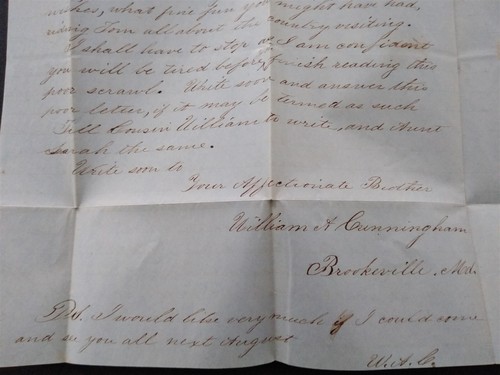 what fine fun you might have had,
riding Tom all about the country visiting.
I shall have to stop as I am confident
you will be tired before finish reading this
poor scrawl. Write soon and answer this
poor letter, if it may be termed as such
Tell Cousin William to write, and Aunt
Sarah the same.
Write soon to
Your Affectionate Brother
William A Cunningham
Brookeville, Md.
P.S. I would like very much if I could come
and see you all next August
W.A.C.